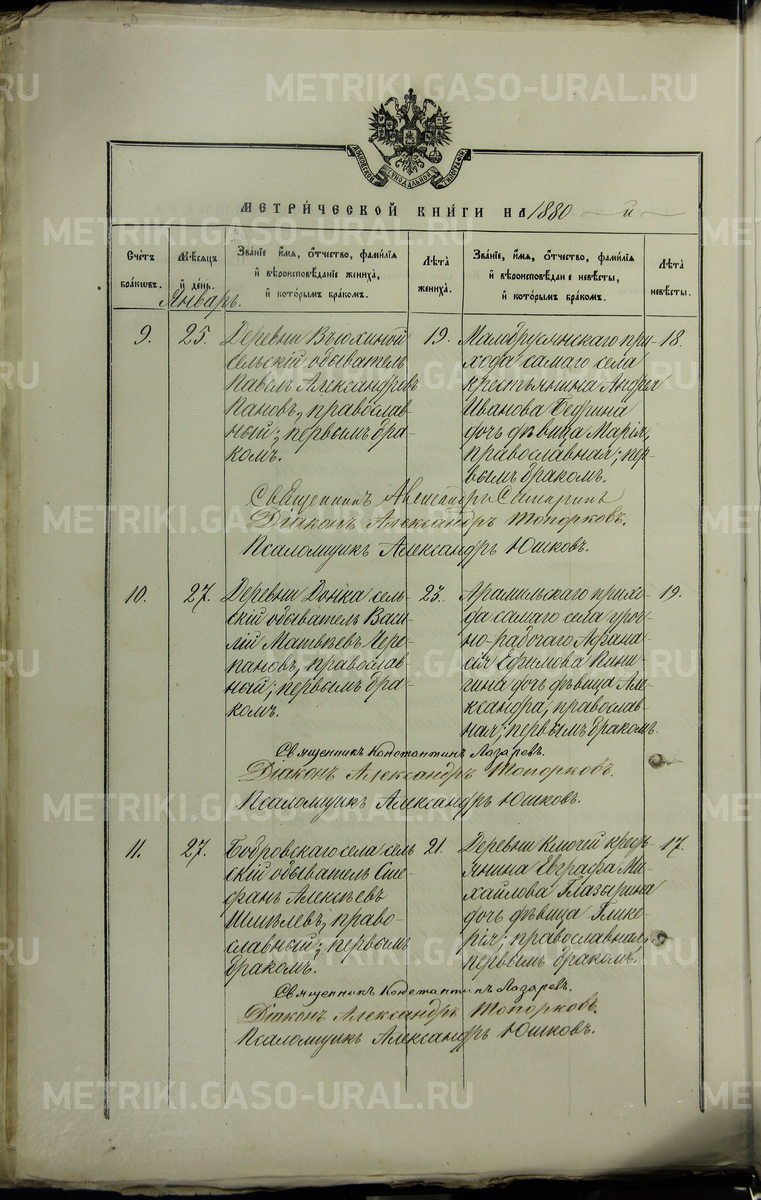 METRIKI.GASO-URAL.RU
МОСКОВСКОЙ СѴНОДАЛЬНОЙ ТИПОГРАФІИ
МЕТРИ́ЧЕСКОЙ КНИ́ГИ НА 1880 й
Сче́тъ бра́кωвъ.
Мѣ́сяцъ й де́нь.
Зва́нїе, и́мя, ѻ҆́тчество, фами́лїя й вѣроисповѣ́данїе жениха̀, й кото́рымъ бра́комъ.
Лѣ́та жениха̀.
Зва́нїе, и́мя, ѻ҆́тчество, фами́лїя й вѣроисповѣ́данїе невѣ́сты, й кото́рымъ бра́комъ.
Лѣ́та невѣ́сты.
Январь.
9. 25. Деревни Вьюхиной
сельскій обыватель
Павелъ Александровъ
Пановъ, православ-
ный; первымъ бра-
комъ.
19.
Мамбрускаго при-
хода самаго села
крестьянина Андрея
Иванова Бедрина
дочь дѣвица Марія,
православная; пер-
вымъ бракомъ.
18.
Священникъ Александръ
Діаконъ Александръ Топорковъ.
Псаломщикъ Александръ Юшковъ.
10. 27. Деревни сель-
скій обыватель Васи-
лій Матвѣевъ Чере-
пановъ, православ-
ный; первымъ бра-
комъ.
23.
Арамильскаго прихо-
да самаго села уроч-
но-рабочаго Афана-
сія Ефимова
дочь дѣвица Але-
ксандра, православ-
ная; первымъ бракомъ.
19.
Священникъ Константинъ Лазаревъ.
Діаконъ Александръ Топорковъ.
Псаломщикъ Александръ Юшковъ.
11. 27. Бобровскаго села сель-
скій обыватель Сте-
фанъ Алексѣевъ
Шмелевъ, право-
славный; первымъ
бракомъ.
21.
Деревни Ключей кресть-
янина Евграфа Ми-
хайлова Глазырина
дочь дѣвица Глике-
рія; православная,
первымъ бракомъ.
17.
Священникъ Константинъ Лазаревъ.
Діаконъ Александръ Топорковъ.
Псаломщикъ Александръ Юшковъ.